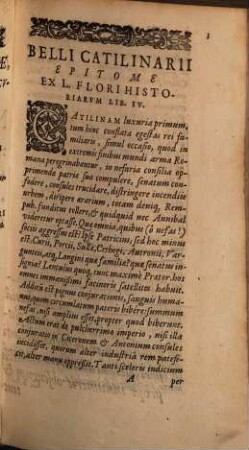 BELLI CATILINARII
EPITOME
EX L. FLORI HISTO-
RIARVM LIB. IV.
CATILINAM luxuria primum,
tum hinc conflata egestas rei fa-
miliaris, simul occasio, quod in
extremis finibus mundi arma Ro-
mana peregrinabantur, in nefaria consilia op-
primendæ patriæ suæ compulere, senatum con-
fodere, consules trucidare, distringere incendiis
urbem, diripere ærarium, totam denique Rem-
pub. funditus tollere, & quidquid nec Annibal
videretur optasse. Quæ omnia, quibus (ô nefas!)
sociis aggressus est! Ipse Patricius, sed hoc minus
est. Curii, Porcii, Syllæ, Cethegi, Autronii, Var-
gunteii, atq, Longini quæ familiæ? quæ senatus in-
signia? Lentulus quoque tunc maxime Prætor. hos
omnes immanissimi facinoris satellites habuit.
Additum est pignus conjurationis, sanguis huma-
nus, quem circumlatum pateris bibere: summum
nefas, nisi amplius esset, propter quod biberunt.
Actum erat de pulcherrimo imperio, nisi illa
conjuratio in Ciceronem & Antonium consules
incidisset, quorum alter industriâ rem patefe-
cit, alter manu oppressit. Tanti sceleris indicium
A per